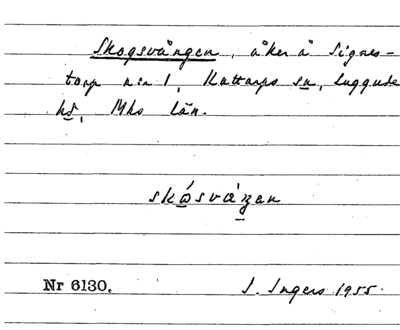 Skogsvången, åker å Signes-
torp n:r 1, Kattarps sn, Luggude
hd, Mhs län.
skɷ́svàŋan
Nr 6130. I. Ingers 1955.